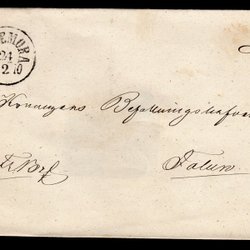 EMORA
24
2 10
Konungens Befallningshafvan
Fr Bref
Falun